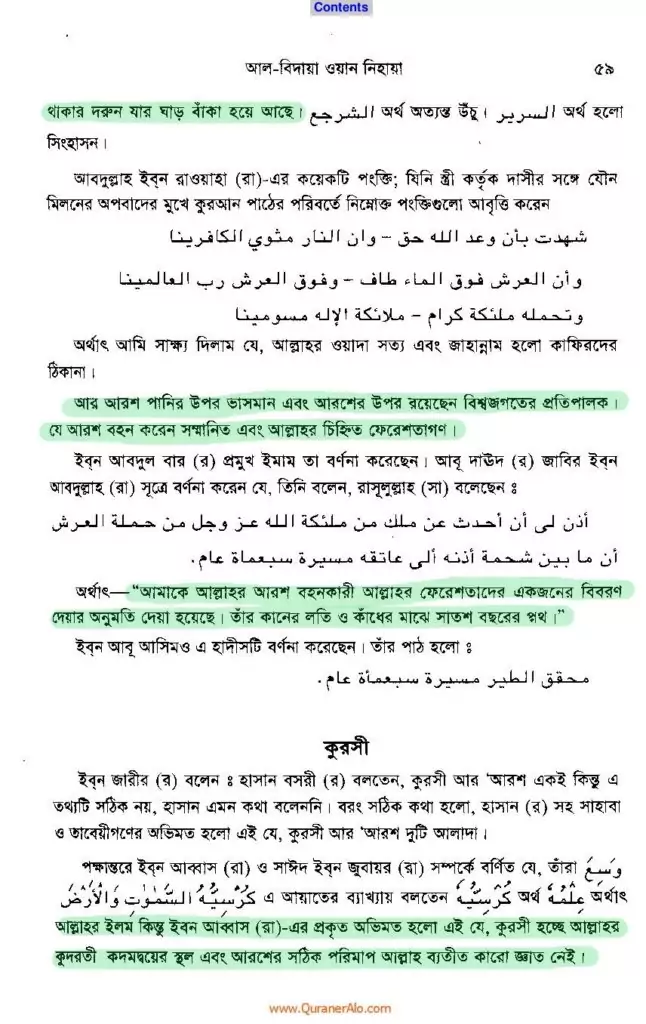 Contents
আল-বিদায়া ওয়ান নিহায়া ৫৯
থাকার দরুন যার ঘাড় বাঁকা হয়ে আছে। الشرجع অর্থ অত্যন্ত উঁচু। السرير অর্থ হলো
সিংহাসন।
আবদুল্লাহ ইব্‌ন রাওয়াহা (রা)-এর কয়েকটি পংক্তি; যিনি স্ত্রী কর্তৃক দাসীর সঙ্গে যৌন
মিলনের অপবাদের মুখে কুরআন পাঠের পরিবর্তে নিম্নোক্ত পংক্তিগুলো আবৃত্তি করেন
شهدت بأن وعد الله حق – وان النار مثوي الكافرينا
وأن العرش فوق الماء طاف – وفوق العرش رب العالمينا
وتحمله ملئكة كرام – ملائكة الإله مسومينا
অর্থাৎ আমি সাক্ষ্য দিলাম যে, আল্লাহর ওয়াদা সত্য এবং জাহান্নাম হলো কাফিরদের
ঠিকানা।
আর আরশ পানির উপর ভাসমান এবং আরশের উপর রয়েছেন বিশ্বজগতের প্রতিপালক।
যে আরশ বহন করেন সম্মানিত এবং আল্লাহর চিহ্নিত ফেরেশতাগণ।
ইব্‌ন আবদুল বার (র) প্রমুখ ইমাম তা বর্ণনা করেছেন। আবূ দাঊদ (র) জাবির ইব্‌ন
আবদুল্লাহ (রা) সূত্রে বর্ণনা করেন যে, তিনি বলেন, রাসূলুল্লাহ (সা) বলেছেন ঃ
أذن لى أن أحدث عن ملك من ملئكة الله عز وجل من حملة العرش
أن ما بين شحمة أذنه ألى عاتقه مسيرة سبعماة عام.
অর্থাৎ—“আমাকে আল্লাহর আরশ বহনকারী আল্লাহর ফেরেশতাদের একজনের বিবরণ
দেয়ার অনুমতি দেয়া হয়েছে। তাঁর কানের লতি ও কাঁধের মাঝে সাতশ বছরের পথ।”
ইব্‌ন আবূ আসিমও এ হাদীসটি বর্ণনা করেছেন। তাঁর পাঠ হলো ঃ
محقق الطير مسيرة سبعمأة عام.
কুরসী
ইব্‌ন জারীর (র) বলেন ঃ হাসান বসরী (র) বলতেন, কুরসী আর ‘আরশ একই কিন্তু এ
তথ্যটি সঠিক নয়, হাসান এমন কথা বলেননি। বরং সঠিক কথা হলো, হাসান (র) সহ সাহাবা
ও তাবেয়ীগণের অভিমত হলো এই যে, কুরসী আর ‘আরশ দুটি আলাদা।
পক্ষান্তরে ইব্‌ন আব্বাস (রা) ও সাঈদ ইব্‌ন জুবায়র (রা) সম্পর্কে বর্ণিত যে, তাঁরা وَسِعَ
كُرْسِيُّهُ السَّمٰوٰتِ وَالْأَرْضَ এ আয়াতের ব্যাখ্যায় বলতেন كُرْسِيُّهُ অর্থ عِلْمُهُ অর্থাৎ
আল্লাহর ইলম কিন্তু ইবন আব্বাস (রা)-এর প্রকৃত অভিমত হলো এই যে, কুরসী হচ্ছে আল্লাহর
কুদরতী কদমদ্বয়ের স্থল এবং আরশের সঠিক পরিমাপ আল্লাহ ব্যতীত কারো জ্ঞাত নেই।
www.QuranerAlo.com